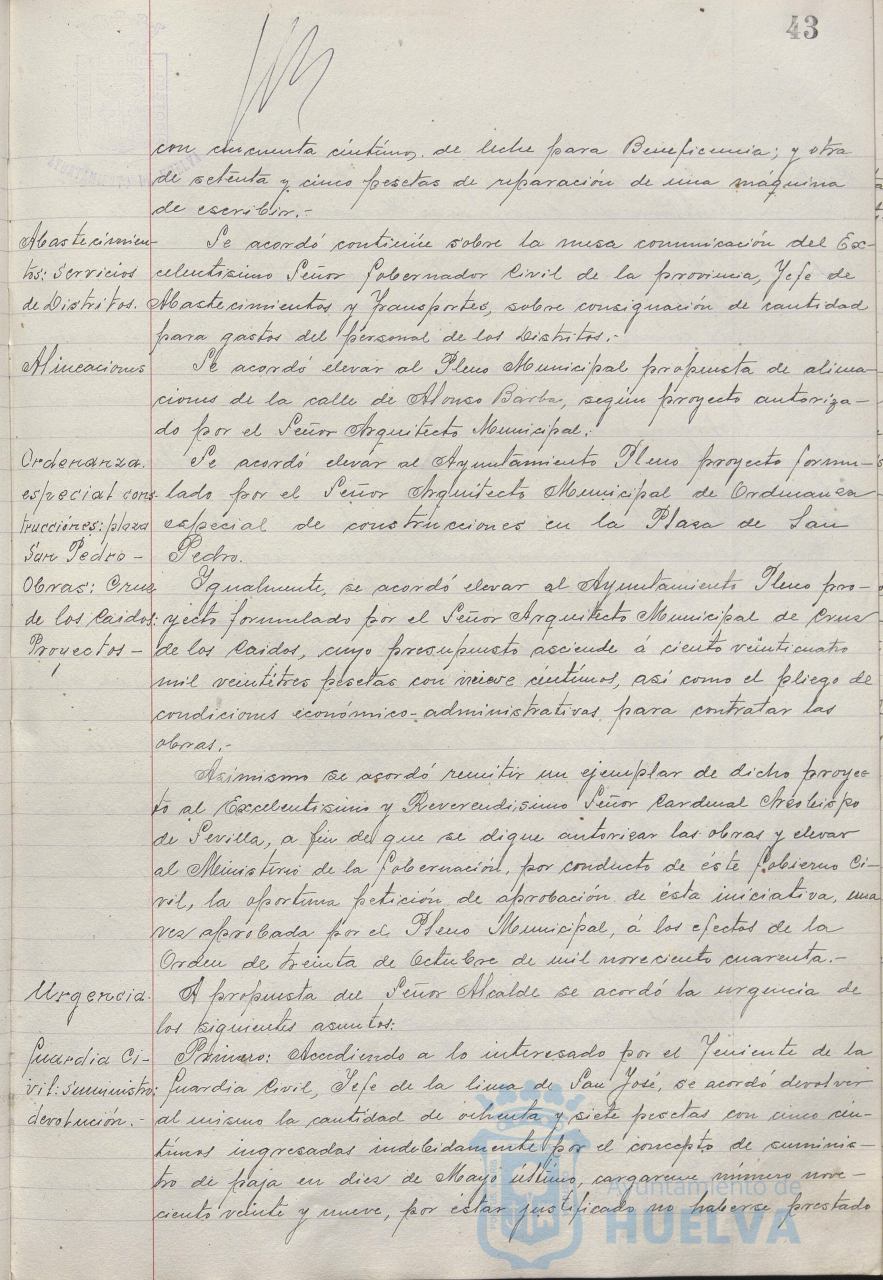 43
con cincuenta céntimos de leche para Beneficencia; y otra
de setenta y cinco pesetas de reparación de una máquina
de escribir.-
Abastecimien-
tos: Servicios
de Distritos.
Se acordó continúe sobre la mesa comunicación del Ex-
celentisimo Señor Gobernador Civil de la provincia, Jefe de
Abastecimientos y Transportes, sobre consignación de cantidad
para gastos del personal de los Distritos.-
Alineaciones
Se acordó elevar al Pleno Municipal propuesta de alinea-
ciones de la calle de Alonso Barba, según proyecto autoriza-
do por el Señor Arquitecto Municipal.-
Ordenanza
especial cons-
trucciones: plaza
San Pedro-
Se acordó elevar al Ayuntamiento Pleno proyecto formu-
lado por el Señor Arquitecto Municipal de Ordenanza
especial de construcciones en la Plaza de San
Pedro.
Obras: Cruz
de los Caidos:
Proyectos-
Igualmente, se acordó elevar al Ayuntamiento Pleno pro-
yecto formulado por el Señor Arquitecto Municipal de Cruz
de los Caidos, cuyo presupuesto asciende á ciento veinticuatro
mil veintitres pesetas con nueve céntimos, así como el pliego de
condiciones económico-administrativas para contratar las
obras.-
Asimismo se acordó remitir un ejemplar de dicho proyec
to al Excelentisimo y Reverendisimo Señor Cardenal Arzobispo
de Sevilla, a fin de que se digne autorizar las obras y elevar
al Ministerio de la Gobernación, por conducto de éste Gobierno Ci-
vil, la oportuna petición de aprobación de ésta iniciativa, una
vez aprobada por el Pleno Municipal, á los efectos de la
Orden de treinta de Octubre de mil novecientos cuarenta.-
Urgencia.
A propuesta del Señor Alcalde se acordó la urgencia de
los siguientes asuntos:
Guardia Ci-
vil: Suministro:
devolución.-
Primero: Accediendo a lo interesado por el Teniente de la
Guardia Civil, Jefe de la linea de San José, se acordó devolver
al mismo la cantidad de ochenta y siete pesetas con cinco cén-
timos ingresadas indebidamente por el concepto de suminis-
tro de paja en diez de Mayo último, cargareme número nove-
ciento veinte y nueve, por estar justificado no haberse prestado
Ayuntamiento de
HUELVA